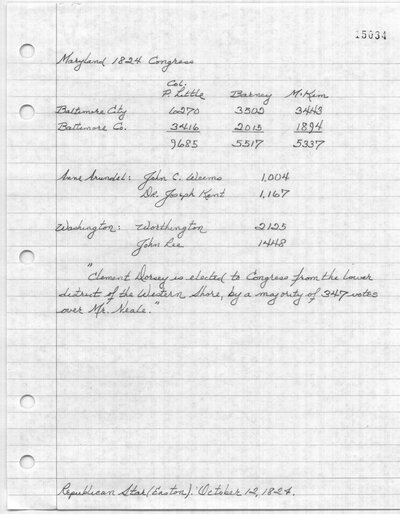 15034
Maryland 1824 Congress
Col.
P. Little Barney McKim
Baltimore City 6270 3502 3443
Baltimore Co. 3416 2015 1894
9685 5517 5337
Anne Arundel: John C. Weems 1,004
Dr. Joseph Kent 1,167
Washington: Worthington 2125
John Lee 1448
"Clement Dorsey is elected to Congress from the lower
district of the Western Shore, by a majority of 347 votes
over Mr. Neale."
Republican Star (Easton). October 12, 1824.